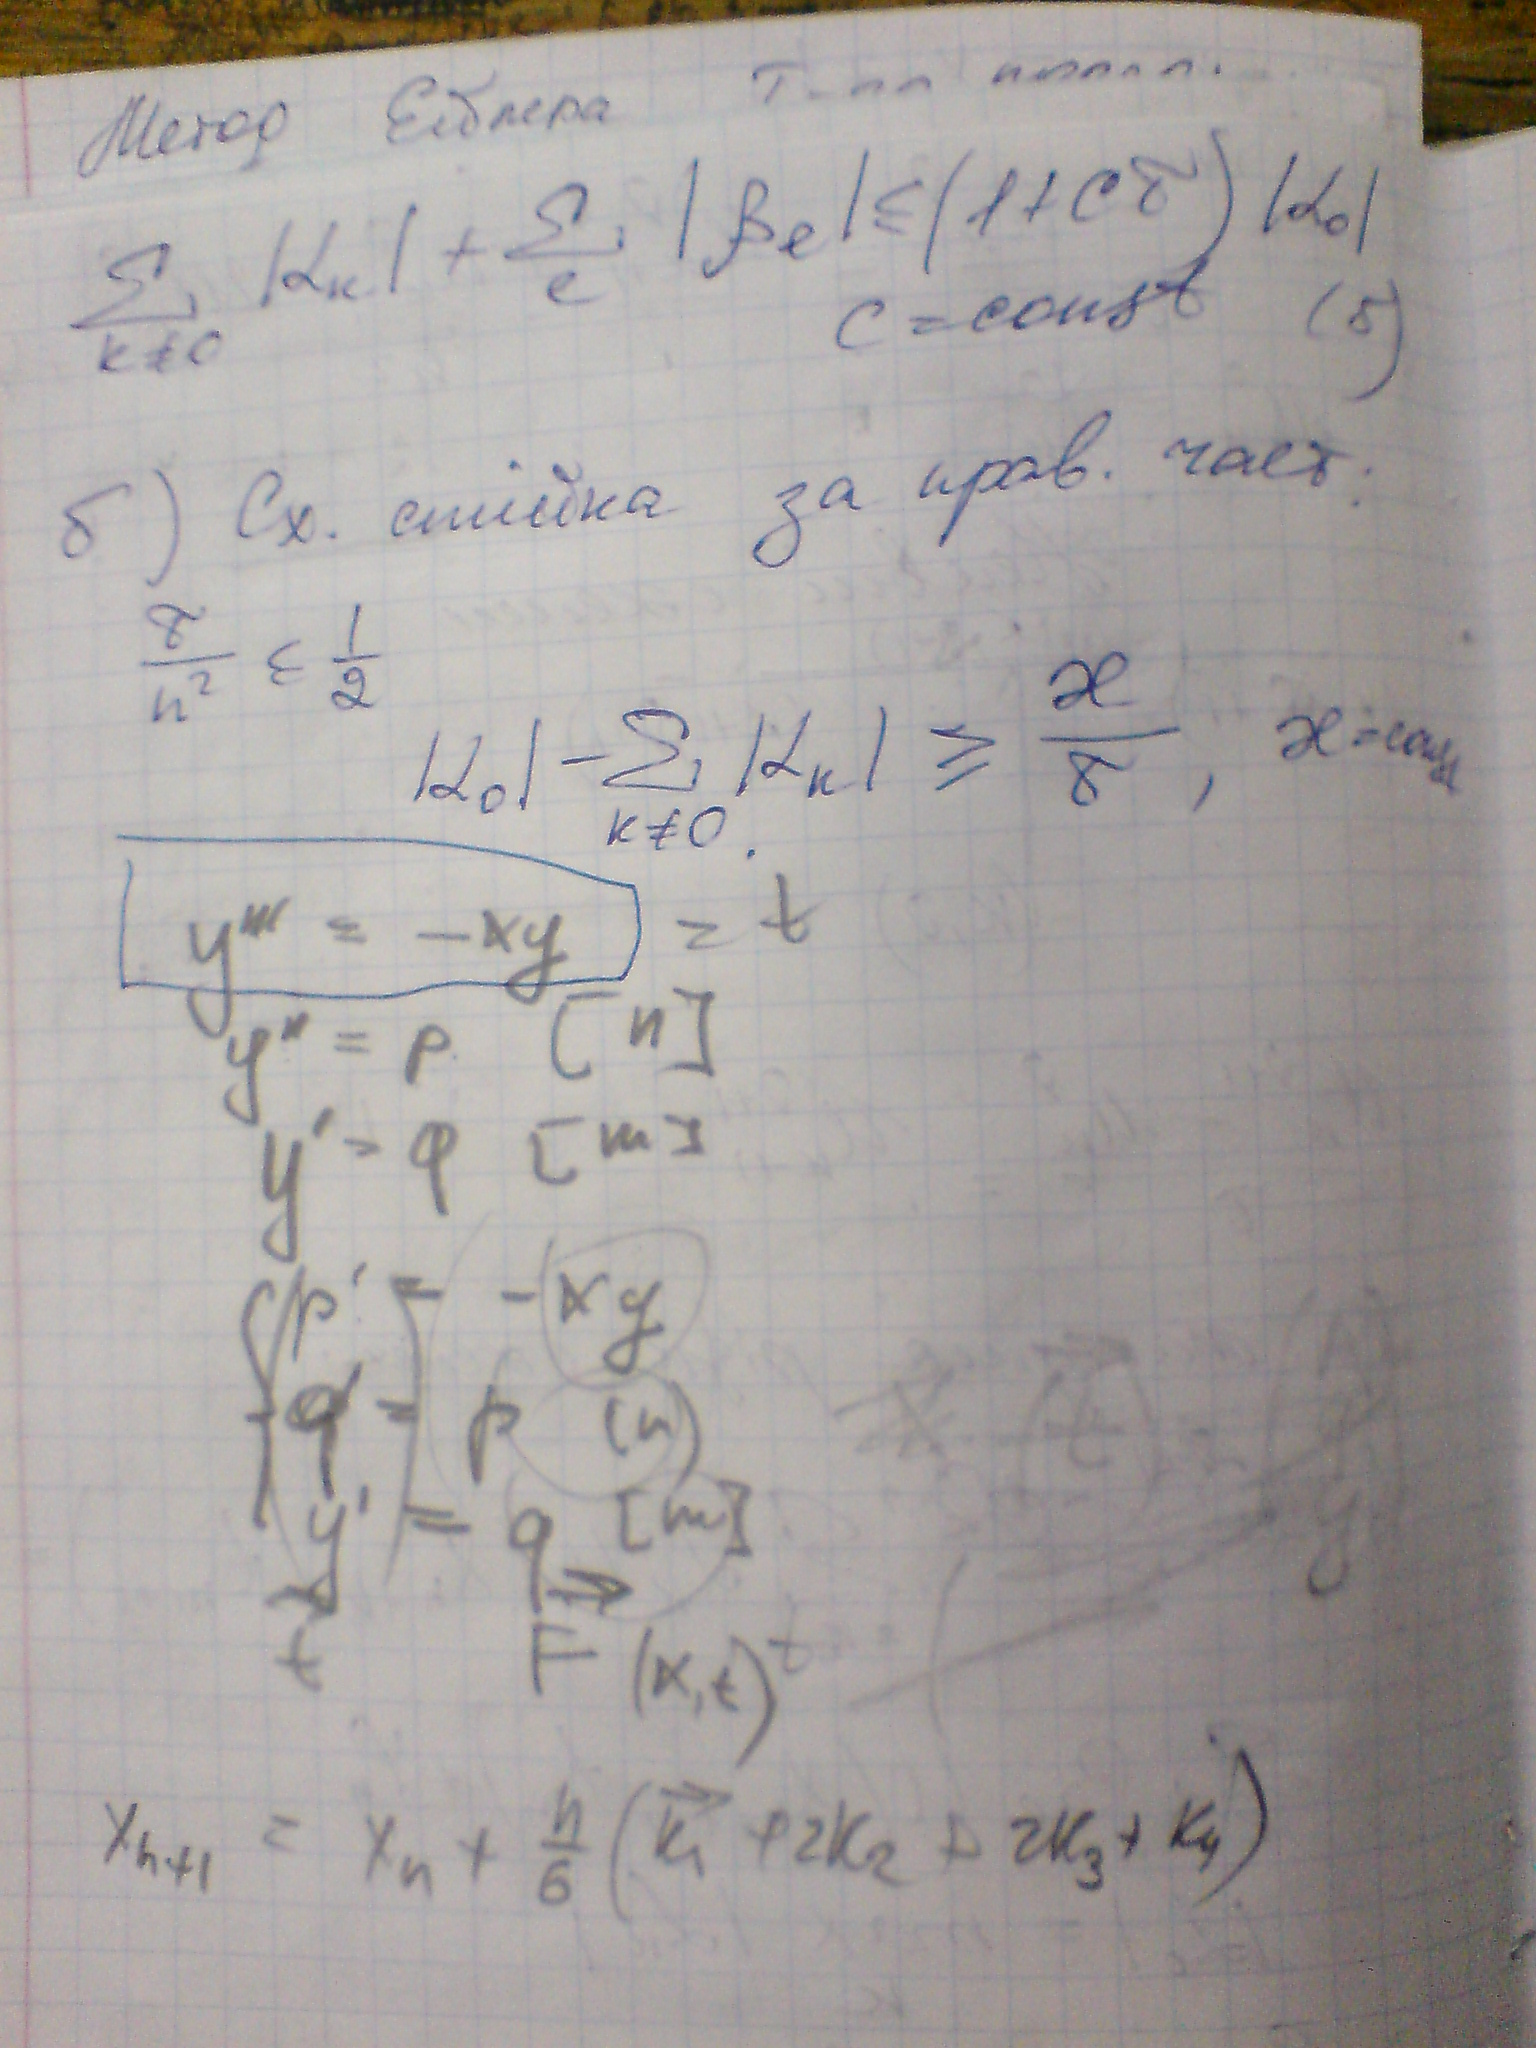 Метод Ейлера
∑_{k≠0} |α_k| + ∑_e |β_e| ≤ (1+Cτ) |α_0|
C = const (5)
б) Сх. стійка за прав. част.
τ/h² ≤ 1/2
|α_0| - ∑_{k≠0} |α_k| ≥ ϰ/τ, ϰ = const
y''' = -xy = t
y'' = p [n]
y' = q [m]
p' = -xy
q' = p (n)
y' = q [m]
t F (x,t)
x_{n+1} = x_n + h/6 (k_1 + 2k_2 + 2k_3 + k_4)